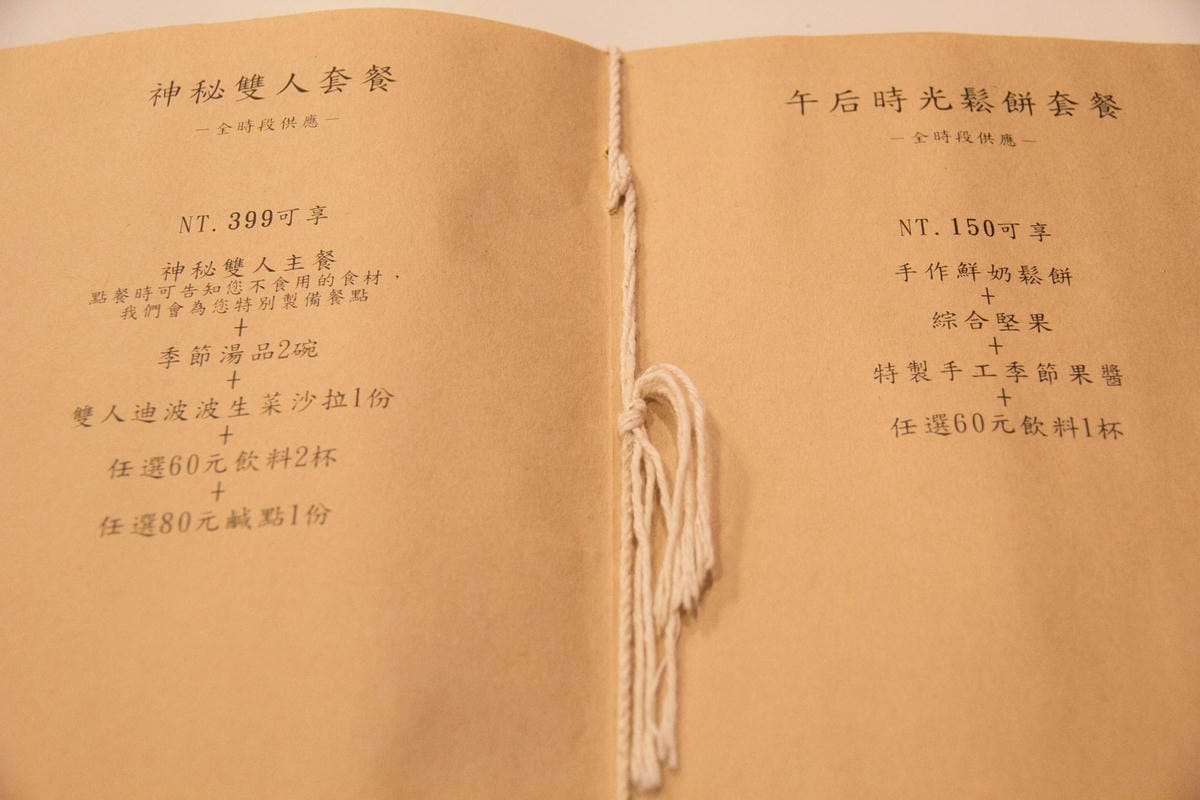 神秘雙人套餐
—全時段供應—
NT. 399可享
神秘雙人主餐
點餐時可告知您不食用的食材，
我們會為您特別製備餐點
+
季節湯品2碗
+
雙人迪波波生菜沙拉1份
+
任選60元飲料2杯
+
任選80元鹹點1份
午后時光鬆餅套餐
—全時段供應—
NT. 150可享
手作鮮奶鬆餅
+
綜合堅果
+
特製手工季節果醬
+
任選60元飲料1杯